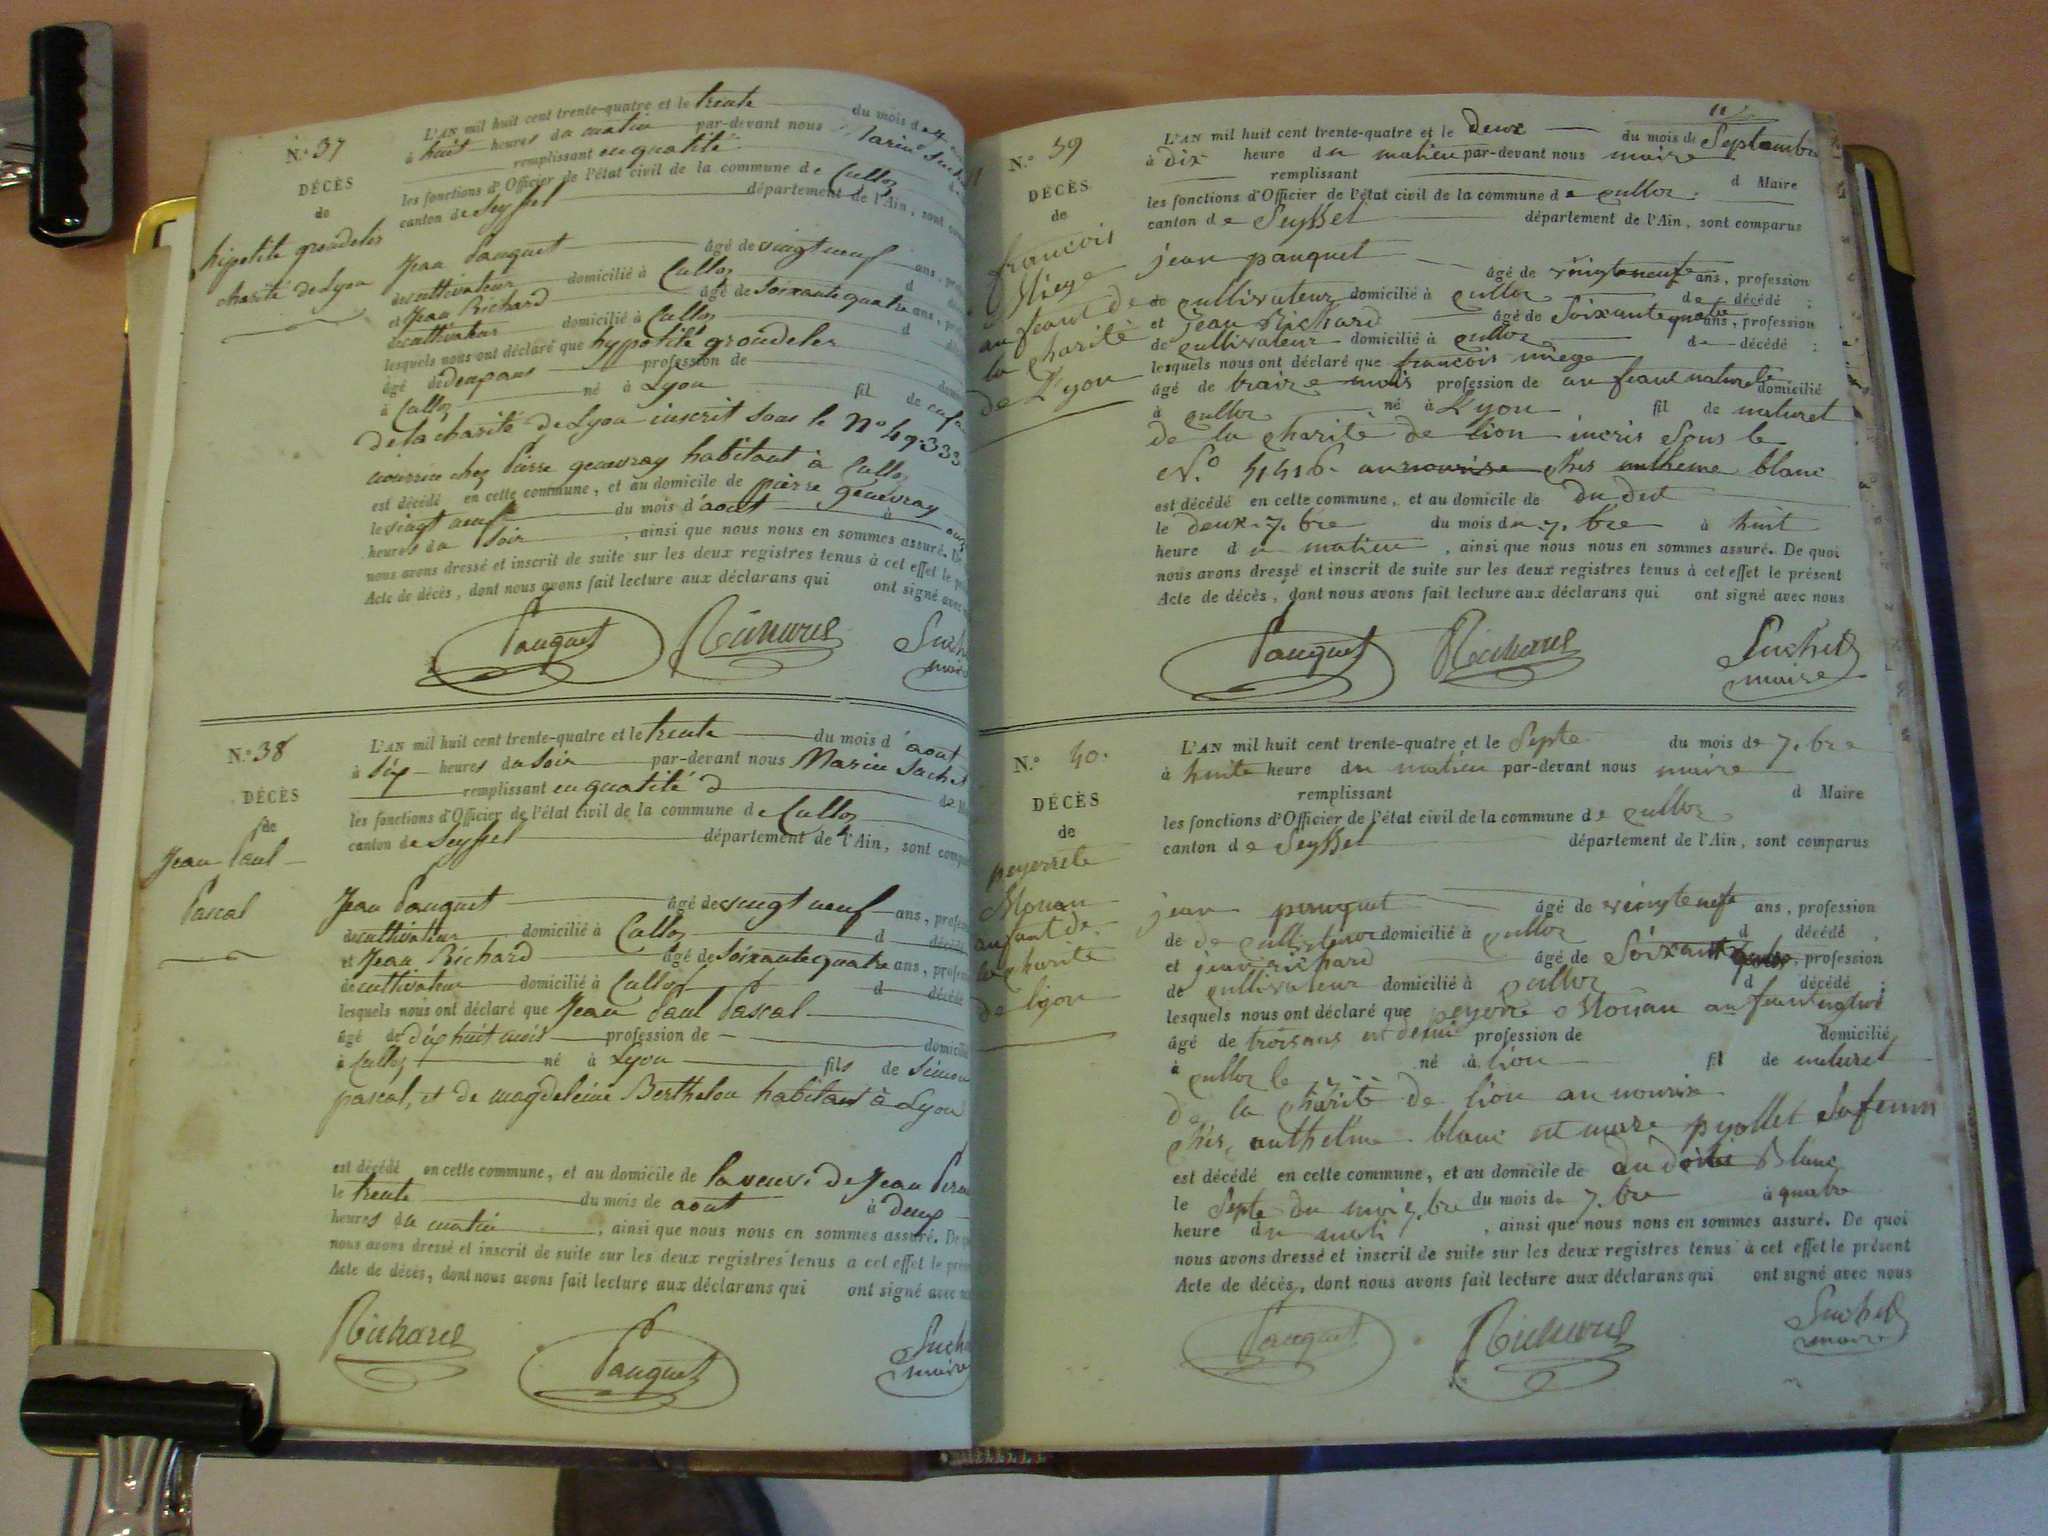 N.° 37
DÉCÈS
de
hipolite groudeler
charité de Lyon
L'AN mil huit cent trente-quatre et le trente du mois d
à huit heures du matin par-devant nous
remplissant en qualité
les fonctions d'Officier de l'état civil de la commune de Culloz
canton de Seyssel département de l'Ain, sont
Jean Pauquet âgé de vingt neuf ans,
de cultivateur domicilié à Culloz d
et Jean Richard âgé de Soixante quatre ans,
de cultivateur domicilié à Culloz d
lesquels nous ont déclaré que hyppolite groudeler
âgé de deux ans profession de
à Culloz né à Lyon fil de
de la charité de Lyon inscrit sous le N° 49.333
nourrice chez Pierre genevray habitant à Culloz
est décédé en cette commune, et au domicile de pierre genevray
le vingt neuf du mois d'aout à
heures du Soir, ainsi que nous nous en sommes assuré. De
nous avons dressé et inscrit de suite sur les deux registres tenus à cet effet le
Acte de décès, dont nous avons fait lecture aux déclarans qui ont signé avec
Pauquet Richard
N.° 38
DÉCÈS
de
Jean Paul
Pascal
L'AN mil huit cent trente-quatre et le trente du mois d'aout
à Six heures du Soir par-devant nous Marin Suchet
remplissant en qualité d
les fonctions d'Officier de l'état civil de la commune de Culloz
canton de Seyssel département de l'Ain, sont
Jean Pauquet âgé de vingt neuf ans,
de cultivateur domicilié à Culloz d décédé
et Jean Richard âgé de Soixante quatre ans,
de cultivateur domicilié à Culloz d décédé
lesquels nous ont déclaré que Jean Paul Pascal
âgé de dix huit mois profession de domicilié
à Culloz né à Lyon fils de Simon
pascal, et de magdeleine Berthelon habitant à Lyon
est décédé en cette commune, et au domicile de la veuve de Jean
le trente du mois de aout à deux
heures du matin, ainsi que nous nous en sommes assuré. De
nous avons dressé et inscrit de suite sur les deux registres tenus a cet effet le
Acte de décès, dont nous avons fait lecture aux déclarans qui ont signé avec
Richard Pauquet
N.° 39
DÉCÈS
de
francois
Miege
anfeant de
la charité
de Lyon
L'AN mil huit cent trente-quatre et le Deux du mois de Septambre
à Dix heure du matieu par-devant nous maire
remplissant d Maire
les fonctions d'Officier de l'état civil de la commune de culloz
canton de Seyssel département de l'Ain, sont comparus
jean pauquet âgé de veingteneufe ans, profession
de cultivateur domicilié à culloz de décédé ;
et jean Richard âgé de Soixante quatre ans, profession
de cultivateur domicilié à culloz de décédé ;
lesquels nous ont déclaré que francois miege
âgé de traize mois profession de an feant naturele domicilié
à culloz né à Lyon fil de naturel
de la charite de Lion incris Sous le
N.° 51516. annourise ches antheme blanc
est décédé en cette commune, et au domicile de Du dit
le Deux 7.bre du mois du 7.bre à huit
heure du matieu, ainsi que nous nous en sommes assuré. De quoi
nous avons dressé et inscrit de suite sur les deux registres tenus à cet effet le présent
Acte de décès, dont nous avons fait lecture aux déclarans qui ont signé avec nous
Pauquet Richard Suchet
maire
N.° 40.
DÉCÈS
de
peyerrete
Mouan
anfant de
la charite
de lyon
L'AN mil huit cent trente-quatre et le Septe du mois de 7.bre
à huite heure du matieu par-devant nous maire
remplissant d Maire
les fonctions d'Officier de l'état civil de la commune de culloz
canton de Seyssel département de l'Ain, sont comparus
jean pauquet âgé de veingteneufe ans, profession
de de cultivateur domicilié à culloz d décédé
et jean richard âgé de Soixante , profession
de cultivateur domicilié à culloz d décédé ;
lesquels nous ont déclaré que peyerre Mouan
âgé de trois ans et demi profession de domicilié
à culloz le né à lion fil de naturel
de la charite de lion an nourise
ches anthelme blanc et mare pyollet Safemm
est décédé en cette commune, et au domicile de du Blanc
le Septe du moi 7.bre du mois de 7.bre à quatre
heure du mati, ainsi que nous nous en sommes assuré. De quoi
nous avons dressé et inscrit de suite sur les deux registres tenus à cet effet le présent
Acte de décès, dont nous avons fait lecture aux déclarans qui ont signé avec nous
Pauquet Richard Suchet
maire